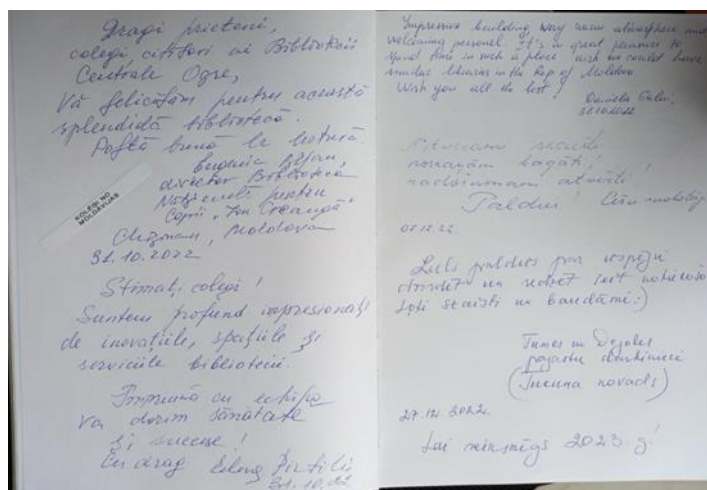 Dragi prieteni,
colegi, cititori ai Bibliotecii
Centrale Ogre,
Vă felicităm pentru această
splendidă bibliotecă.
Poftă bună la lectură.
Eugenia Bejan,
director Biblioteca
Națională pentru
Copii „Ion Creangă"
Chișinău, Moldova
31.10.2022
KOLĒĢI NO
MOLDĀVIJAS
Stimați colegi!
Suntem profund impresionați
de inovațiile, spațiile și
serviciile bibliotecii.
Împreună cu echipa
Vă dorim sănătate
și succese!
Cu drag
31.10.22
Impressive building, very warm atmosphere and
welcoming personel. It's a great pleasure to
spend time in such a place. wish we could have
similar libraries in the Rep of Moldova
Wish you all the best!
Daniela
31.10.2022
skaisti
bagāti!
atvērti!
Paldies!
07.12.22
Liels paldies par iespēju
dzirdēt un redzēt šeit notiekošo
Ļoti skaisti un baudāmi :)
Tumes un Degoles
pagastu
(Tukuma novads)
27.12.2022.
Lai veiksmīgs 2023.g!